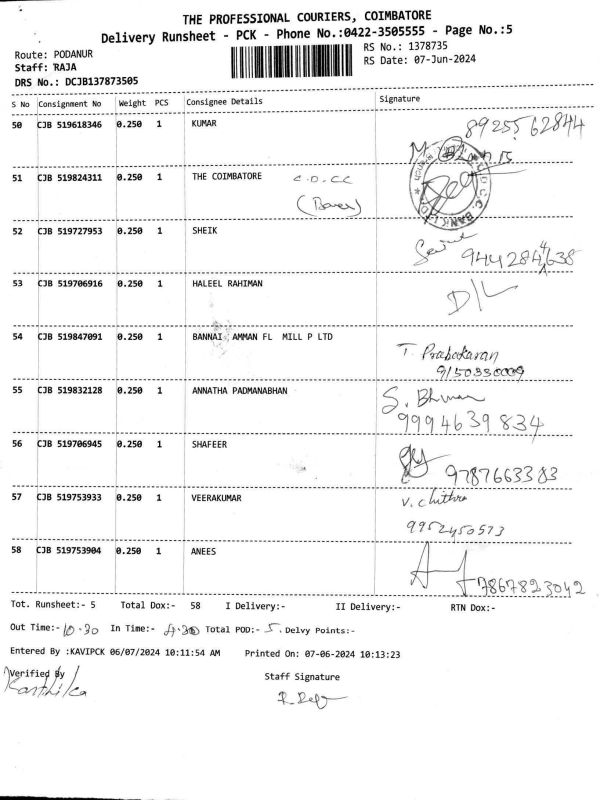 THE PROFESSIONAL COURIERS, COIMBATORE
Delivery Runsheet - PCK - Phone No.:0422-3505555 - Page No.:5
Route: PODANUR
RS No.: 1378735
Staff: RAJA
RS Date: 07-Jun-2024
DRS No.: DCJB137873505
S No Consignment No Weight PCS Consignee Details Signature
50 CJB 519618346 0.250 1 KUMAR 8925562844
51 CJB 519824311 0.250 1 THE COIMBATORE C.O.C.C
52 CJB 519727953 0.250 1 SHEIK
9442844638
53 CJB 519706916 0.250 1 HALEEL RAHIMAN D/L
54 CJB 519847091 0.250 1 BANNAI AMMAN FL MILL P LTD
T. Prabakaran
9150330009
55 CJB 519832128 0.250 1 ANNATHA PADMANABHAN
9994639834
56 CJB 519706945 0.250 1 SHAFEER
9787663383
57 CJB 519753933 0.250 1 VEERAKUMAR V. Chithra
9952450573
58 CJB 519753904 0.250 1 ANEES
7867823042
Tot. Runsheet:- 5 Total Dox:- 58 I Delivery:- II Delivery:- RTN Dox:-
Out Time:- 10.30 In Time:- 4.30 Total POD:- 5. Delvy Points:-
Entered By :KAVIPCK 06/07/2024 10:11:54 AM Printed On: 07-06-2024 10:13:23
Verified By Staff Signature
Karthika